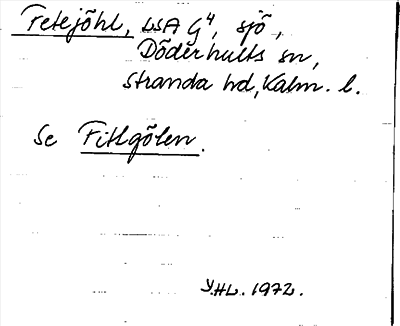 Fetejöhl, LSA G4, sjö,
Döderhults sn,
Stranda hd, Kalm. l.
Se Fitlgölen.
Y.HL. 1972.